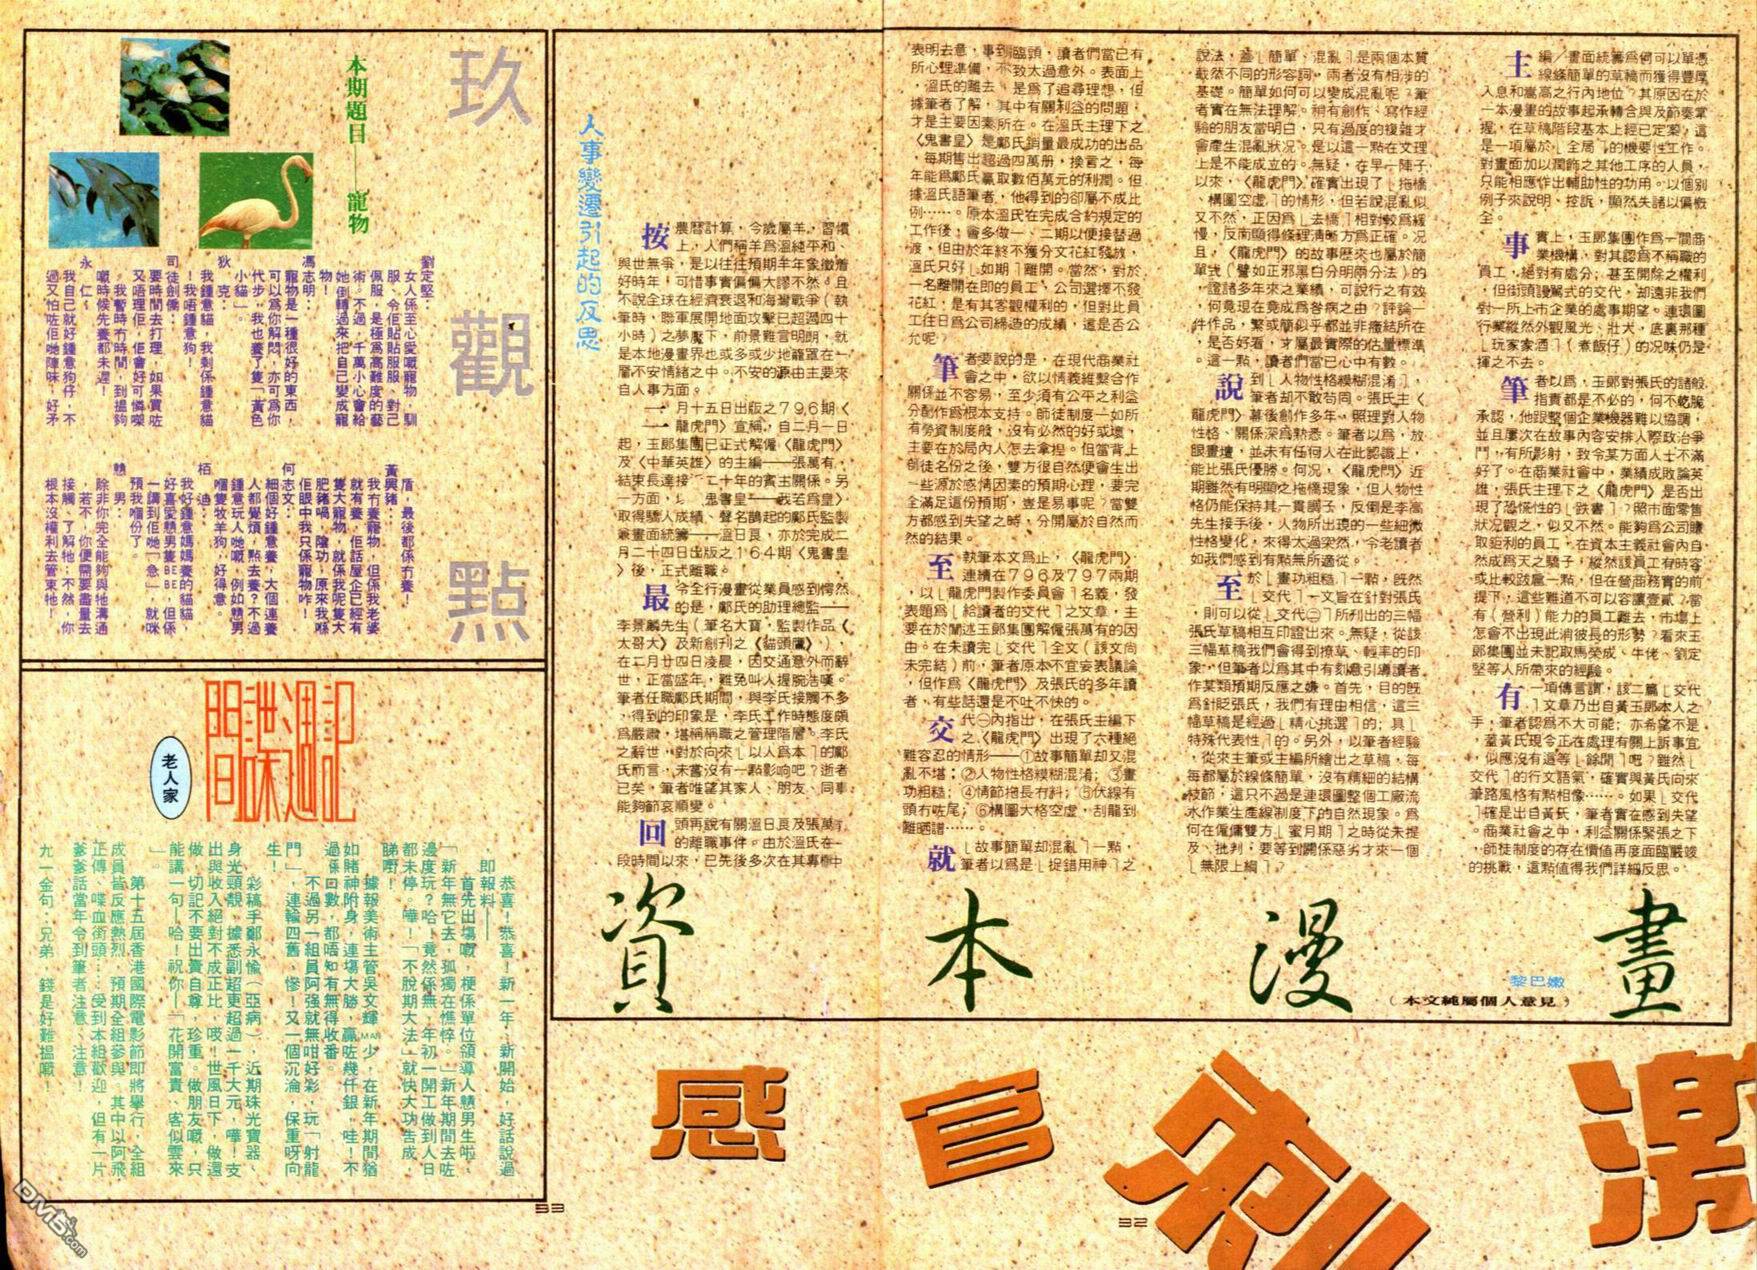 玖觀點
本期題目——寵物
劉定堅：
女人係至心愛嘅寵物，馴
服、令佢貼貼服服，對己
佩服，是極爲高難度的藝
術。不過，千萬小心會給
她倒轉過來把自己變成寵
物！
馮志明：
寵物是一種很好的東西，
可以為你解悶，亦可爲你
代步，我也養了隻「黃色
小貓」。
狄克：
我鍾意貓，我剩係鍾意貓
！我唔鍾意狗！
司徒劍僑：
要時間去打理，如果買咗
又唔理佢，佢會好可憐㗎
。我暫時冇時間，到搵夠
嘅時候先養都未遲！
永仁：
我自己就好鍾意狗仔，不
過又怕咗佢哋陣味，好矛
盾，最後都係冇養！
黃興豬：
我冇養寵物，但係我老婆
就有養，佢話屋企已經有
隻大寵物，就係我呢隻大
肥豬喎，陰功，原來我喺
佢眼中我只係寵物咋！
何志文：
細個好鍾意養，大個連養
人都覺煩，點去養？不過
鍾意玩人哋嘅，例如戇男
嗰隻牧羊狗，好得意。
栢迪：
我好鍾意媽媽養的貓貓，
好喜愛戇男隻BEBE，但係
一講到佢哋「急」，就咪
預我嗰份了。
戇男：
除非你完全能夠與牠溝通
，若不，你便需要盡量去
接觸、了解牠；不然，你
根本沒權利去管束牠！
間諜週記
老人家
恭喜！恭喜！新一年，新開始，好話說過
，即報料——
首先出塲嘅，梗係單位領導人戇男生啦，
「新年無它去，孤獨在憔悴。」新年期間去咗
邊度玩？哈！竟然係無，年初一開工做到人日
都未停。嘩！「不脫期大法」就快大功告成，
睇嘢！
據報美術主管吳文輝MAN少，在新年期間猶
如賭神附身，連塲大勝，贏咗幾仟銀，哇！不
過係口數，都唔知有無得收番。
不過另一組員阿强就無咁好彩，玩「射龍
門」，連輪四舊，慘！又一個沉淪，保重呀向
生！
彩稿手鄭永愉（亞病），近期珠光寶器、
身光頸靚，據悉副超更超過一千大元，嘩！支
出與收入絕對不成正比，吱！世風日下，做還
做，切記不要出賣自尊，珍重。做朋友嘅，只
能講一句—哈！祝你—「花開富貴、客似雲來
」。
第十五屆香港國際電影節即將舉行，全組
成員皆反應熱烈，預期全組參與。其中以阿飛
正傳、喋血街頭……受到本組歡迎，但有一片
爹爹話當年令到筆者注意，注意！
尢一金句：兄弟，錢是好難搵嘅！
53
人事變遷引起的反思
按農曆計算，今歲屬羊，習慣
上，人們稱羊爲溫純平和、
與世無爭，是以往往預期羊年象徵着
好時年，可惜事實偏偏大謬不然。且
不說全球在經濟衰退和海灣戰爭（執
筆時，聯軍展開地面攻擊已超過四十
小時）之夢魘下，前景難言明朗，就
是本地漫畫界也或多或少地籠罩在一
層不安情緒之中。不安的源由主要來
自人事方面。
一月十五日出版之796期〈
龍虎門〉宣稱，自二月一日
起，玉郎集團已正式解僱〈龍虎門〉
及〈中華英雄〉的主編——張萬有，
結束長達接近二十年的賓主關係。另
一方面，以〈鬼書皇—我若爲皇〉
取得驕人成績、聲名鵲起的鄺氏監製
兼畫面統籌——溫日良，亦於完成二
月二十四日出版之164期〈鬼書皇
〉後，正式離職。
最令全行漫畫從業員感到愕然
的是，鄺氏的助理總監——
李景麟先生（筆名大寶，監製作品〈
太哥大〉及新創刊之〈貓頭鷹〉），
在二月廿四日凌晨，因交通意外而辭
世，正當盛年，難免叫人握腕浩嘆。
筆者任職鄺氏期間，與李氏接觸不多
，得到的印象是，李氏工作時態度頗
爲嚴肅，堪稱稱職之管理階層。李氏
之辭世，對於向來「以人爲本」的鄺
氏而言，未嘗沒有一點影响吧？逝者
已矣，筆者唯望其家人、朋友、同事
能夠節哀順變。
回頭再說有關溫日良及張萬有
的離職事件。由於溫氏在一
段時間以來，已先後多次在其專欄中
表明去意，事到臨頭，讀者們當已有
所心理準備，不致太過意外。表面上
，溫氏的離去，是爲了追尋理想，但
據筆者了解，其中有關利益的問題，
才是主要因素所在。在溫氏主理下之
〈鬼書皇〉是鄺氏銷量最成功的出品
，每期售出超過四萬册，換言之，每
年能爲鄺氏贏取數佰萬元的利潤。但
據溫氏語筆者，他得到的卻屬不成比
例……。原本溫氏在完成合約規定的
工作後，會多做一、二期以便接替過
渡，但由於年終不獲分文花紅發放，
溫氏只好「如期」離開。當然，對於
一名離開在即的員工，公司選擇不發
花紅，是有其客觀權利的，但對比員
工往日爲公司締造的成績，這是否公
允呢？
筆者要說的是，在現代商業社
會之中，欲以情義維繫合作
關係並不容易，至少須有公平之利益
分配作爲根本支持。師徒制度一如所
有勞資制度般，沒有必然的好或壞，
主要在於局內人怎去拿捏。但當背上
師徒名份之後，雙方很自然便會生出
一些源於感情因素的預期心理，要完
全滿足這份預期，豈是易事呢？當雙
方都感到失望之時，分開屬於自然而
然的結果。
至執筆本文爲止，〈龍虎門〉
連續在796及797兩期
，以「龍虎門製作委員會」名義，發
表題爲「給讀者的交代」之文章，主
要在於闡述玉郎集團解僱張萬有的因
由。在未讀完「交代」全文（該文尚
未完結）前，筆者原本不宜妄表議論
，但作爲〈龍虎門〉及張氏的多年讀
者，有些話還是不吐不快的。
交代㊀內指出，在張氏主編下
之〈龍虎門〉出現了六種絕
難容忍的情形——①故事簡單却又混
亂不堪；②人物性格糢糊混淆；③畫
功粗糙；④情節拖長冇料；⑤伏線有
頭冇咗尾；⑥構圖大格空虛，刮龍到
離晒譜……。
就「故事簡單却混亂」一點，
筆者以爲是「捉錯用神」之
說法，蓋「簡單、混亂」是兩個本質
截然不同的形容詞，兩者沒有相涉的
基礎。簡單如何可以變成混亂呢？筆
者實在無法理解。稍有創作、寫作經
驗的朋友當明白，只有過度的複雜才
會產生混亂狀况。是以這一點在文理
上是不能成立的。無疑，在早一陣子
以來，〈龍虎門〉確實出現了「拖橋
、構圖空虛」的情形，但若說混亂似
又不然，正因爲「去橋」相對較爲緩
慢，反而顯得條理清晰方爲正確。况
且，〈龍虎門〉的故事歷來也屬於簡
單式（譬如正邪黑白分明兩分法）的
，證諸多年來之業績，可說行之有效
，何竟現在竟成爲咎病之由？評論一
件作品，繁或簡似乎都並非癥結所在
，是否好看，才屬最實際的估量標準
。這一點，讀者們當已心中有數。
說到「人物性格糢糊混淆」，
筆者却不敢苟同。張氏主〈
龍虎門〉幕後創作多年，照理對人物
性格、關係深爲熟悉。筆者以爲，放
眼畫壇，並未有任何人在此認識上，
能比張氏優勝。何况，〈龍虎門〉近
期雖然有明顯之拖橋現象，但人物性
格仍能保持其一貫調子，反倒是李高
先生接手後，人物所出現的一些細微
性格變化，來得太過突然，令老讀者
如我們感到有點無所適從。
至於「畫功粗糙」一點，既然
「交代」一文旨在針對張氏
，則可以從「交代㊁」所刋出的三幅
張氏草稿相互印證出來。無疑，從該
三幅草稿我們會得到撩草、輕率的印
象，但筆者以爲其中有刻意引導讀者
作某類預期反應之嫌。首先，目的既
爲針貶張氏，我們有理由相信，這三
幅草稿是經過「精心挑選」的；具「
特殊代表性」的。另外，以筆者經驗
，從來主筆或主編所繪出之草稿，每
每都屬於線條簡單，沒有精細的結構
枝節，這只不過是連環圖整個工廠流
水作業生產線制度下的自然現象。爲
何在僱傭雙方「蜜月期」之時從未提
及、批判，要等到關係惡劣才來一個
「無限上綱」？
主編／畫面統籌爲何可以單憑
線條簡單的草稿而獲得豐厚
入息和嵩高之行內地位？其原因在於
一本漫畫的故事起承轉合與及節奏掌
握，在草稿階段基本上經已定案，這
是一項屬於「全局」的機要性工作。
對畫面加以潤飾之其他工序的人員，
只能相應作出輔助性的功用。以個別
例子來說明、控訴，顯然失諸以偏概
全。
事實上，玉郎集團作爲一間商
業機構，對其認爲不稱職的
員工，絕對有處分；甚至開除之權利
，但街頭謾罵式的交代，却遠非我們
對一所上市企業的處事期望。連環圖
行業縱然外觀風光、壯大，底裏那種
「玩家家酒」（煮飯仔）的况味仍是
揮之不去。
筆者以爲，玉郎對張氏的諸般
指責都是不必的，何不乾脆
承認，他跟整個企業機器難以協調，
並且屢次在故事內容安排人際政治爭
鬥，有所影射，致令某方面人士不滿
好了。在商業社會中，業績成敗論英
雄，張氏主理下之〈龍虎門〉是否出
現了恐慌性的「跌書」？照市面零售
狀况觀之，似又不然。能夠爲公司賺
取鉅利的員工，在資本主義社會內自
然成爲天之驕子，縱然該員工有時容
或比較跋扈一點，但在營商務實的前
提下，這些難道不可以容讓壹貳？當
有（營利）能力的員工離去，市塲上
怎會不出現此消彼長的形勢？看來玉
郎集團並未記取馬榮成、牛佬、劉定
堅等人所帶來的經驗。
有一項傳言謂，該二篇「交代
」文章乃出自黃玉郎本人之
手，筆者認爲不大可能；亦希望不是
，蓋黃氏現今正在處理有關上訴事宜
，似應沒有這等「餘閒」吧？雖然「
交代」的行文語氣，確實與黃氏向來
筆路風格有點相像……。如果「交代
」確是出自黃氏，筆者實在感到失望
。商業社會之中，利益關係緊張之下
，師徒制度的存在價值再度面臨嚴竣
的挑戰，這點值得我們詳細反思。
資本漫畫
黎巴嫩
（本文純屬個人意見）
感官刺激
32
DM5.com